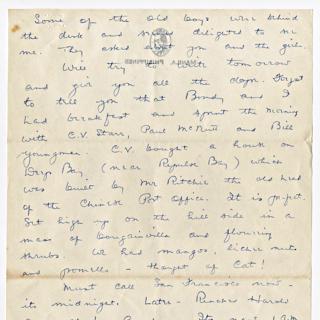 Some of the old boys were behind
the desk and seemed delighted to see
me. They asked about you and the girls.
Will try to write tomorrow
and give you all the dope. Forgot
to tell you that Bundy and I
had breakfast and spent the morning
with C.V. Starr, Paul McNutt and Bill
Youngman. C.V. bought a house on
Deep Bay (near Repulse Bay) which
was built by Mr Ritchie the old head
of the Chinese Post Office. It is perfect.
Set high up on the hill side in a
mass of bougainvillia and flowering
shrubs. We had mangos, lichee nuts
and pomelo - thought of Cat!
Must call San Francisco now -
its midnight. Later - Pancho Harold
Its now 1 A.M.